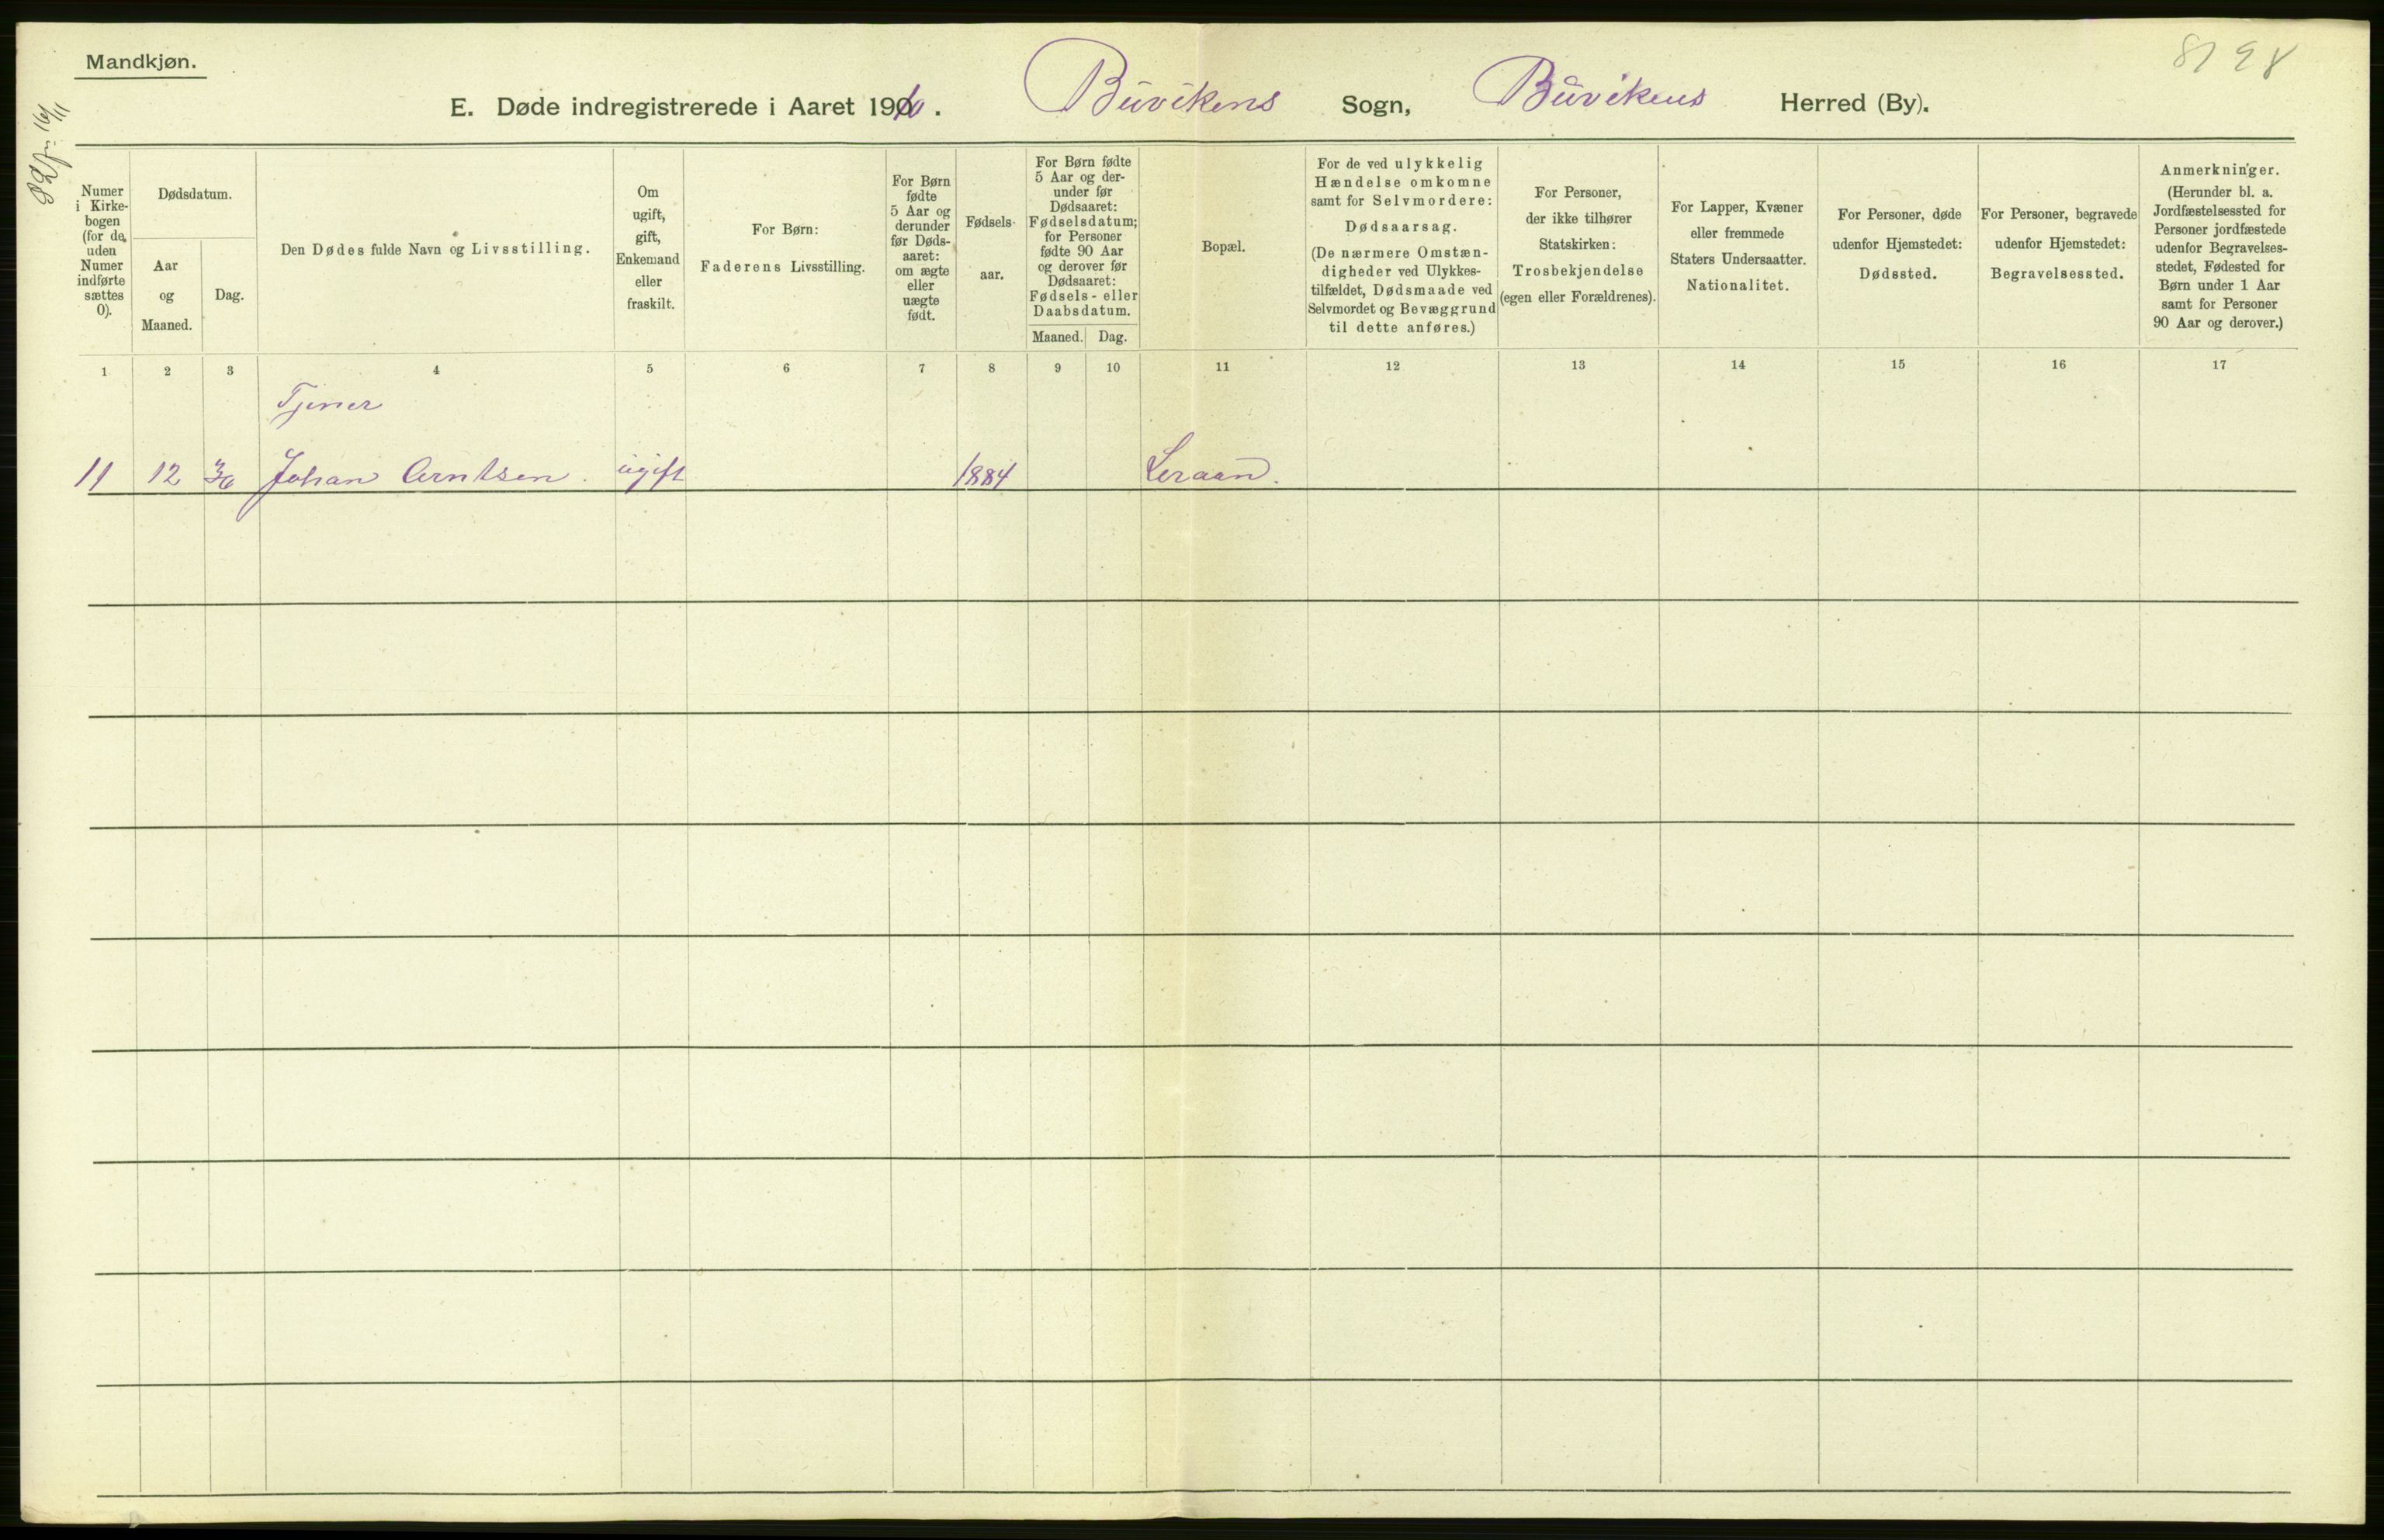 Mandkjøn.
8198
E. Døde indregistrerede i Aaret 1910. Buvikens Sogn, Buvikens Herred (By).
Numer i Kirkebogen (for de uden Numer indførte sættes 0).
Dødsdatum.
Aar og Maaned.
Dag.
Den Dødes fulde Navn og Livsstilling.
Om ugift, gift, Enkemand eller fraskilt.
For Børn: Faderens Livsstilling.
For Børn fødte 5 Aar og derunder før Dødsaaret: om ægte eller uægte født.
Fødselsaar.
For Børn fødte 5 Aar og derunder før Dødsaaret: Fødselsdatum; for Personer fødte 90 Aar og derover før Dødsaaret: Fødsels- eller Daabsdatum.
Maaned. Dag.
Bopæl.
For de ved ulykkelig Hændelse omkomne samt for Selvmordere: Dødsaarsag. (De nærmere Omstændigheder ved Ulykkestilfældet, Dødsmaade ved Selvmordet og Bevæggrund til dette anføres.)
For Personer, der ikke tilhører Statskirken: Trosbekjendelse (egen eller Forældrenes).
For Lapper, Kvæner eller fremmede Staters Undersaatter. Nationalitet.
For Personer, døde udenfor Hjemstedet: Dødssted.
For Personer, begravede udenfor Hjemstedet: Begravelsessted.
Anmerkninger. (Herunder bl. a. Jordfæstelsessted for Personer jordfæstede udenfor Begravelsesstedet, Fødested for Børn under 1 Aar samt for Personer 90 Aar og derover.)
1 2 3 4 5 6 7 8 9 10 11 12 13 14 15 16 17
Tjener
11 12 30 Johan Arntsen. ugift 1884 Leraan.